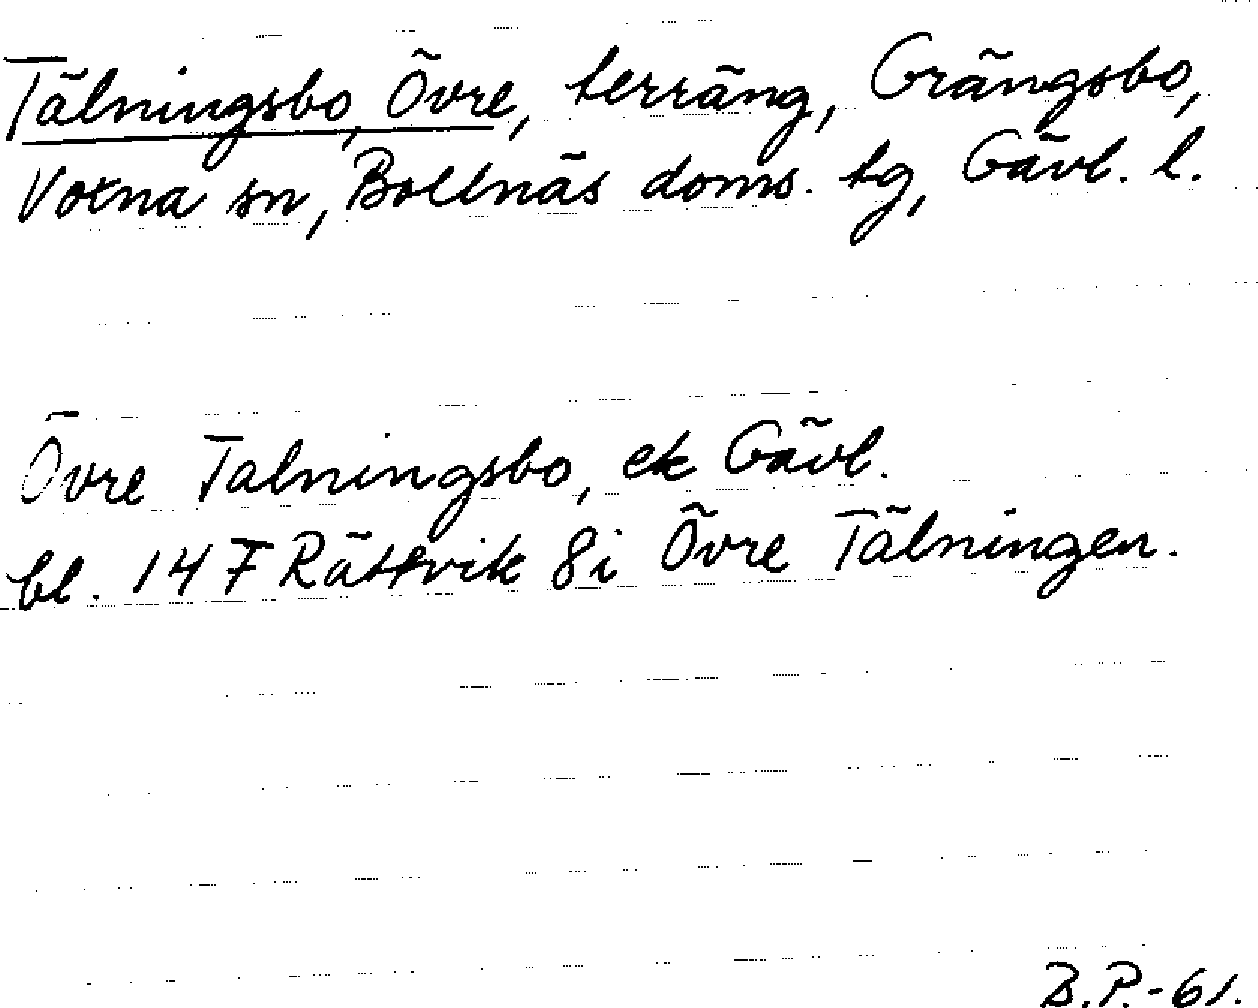 Tälningsbo, Övre, terräng, Grängsbo,
Voxna sn, Bollnäs doms. tg, Gävl. l.
Övre Talningsbo, ek Gävl.
bl. 147 Rättvik 8i Övre Tälningen.
B.P.-61.